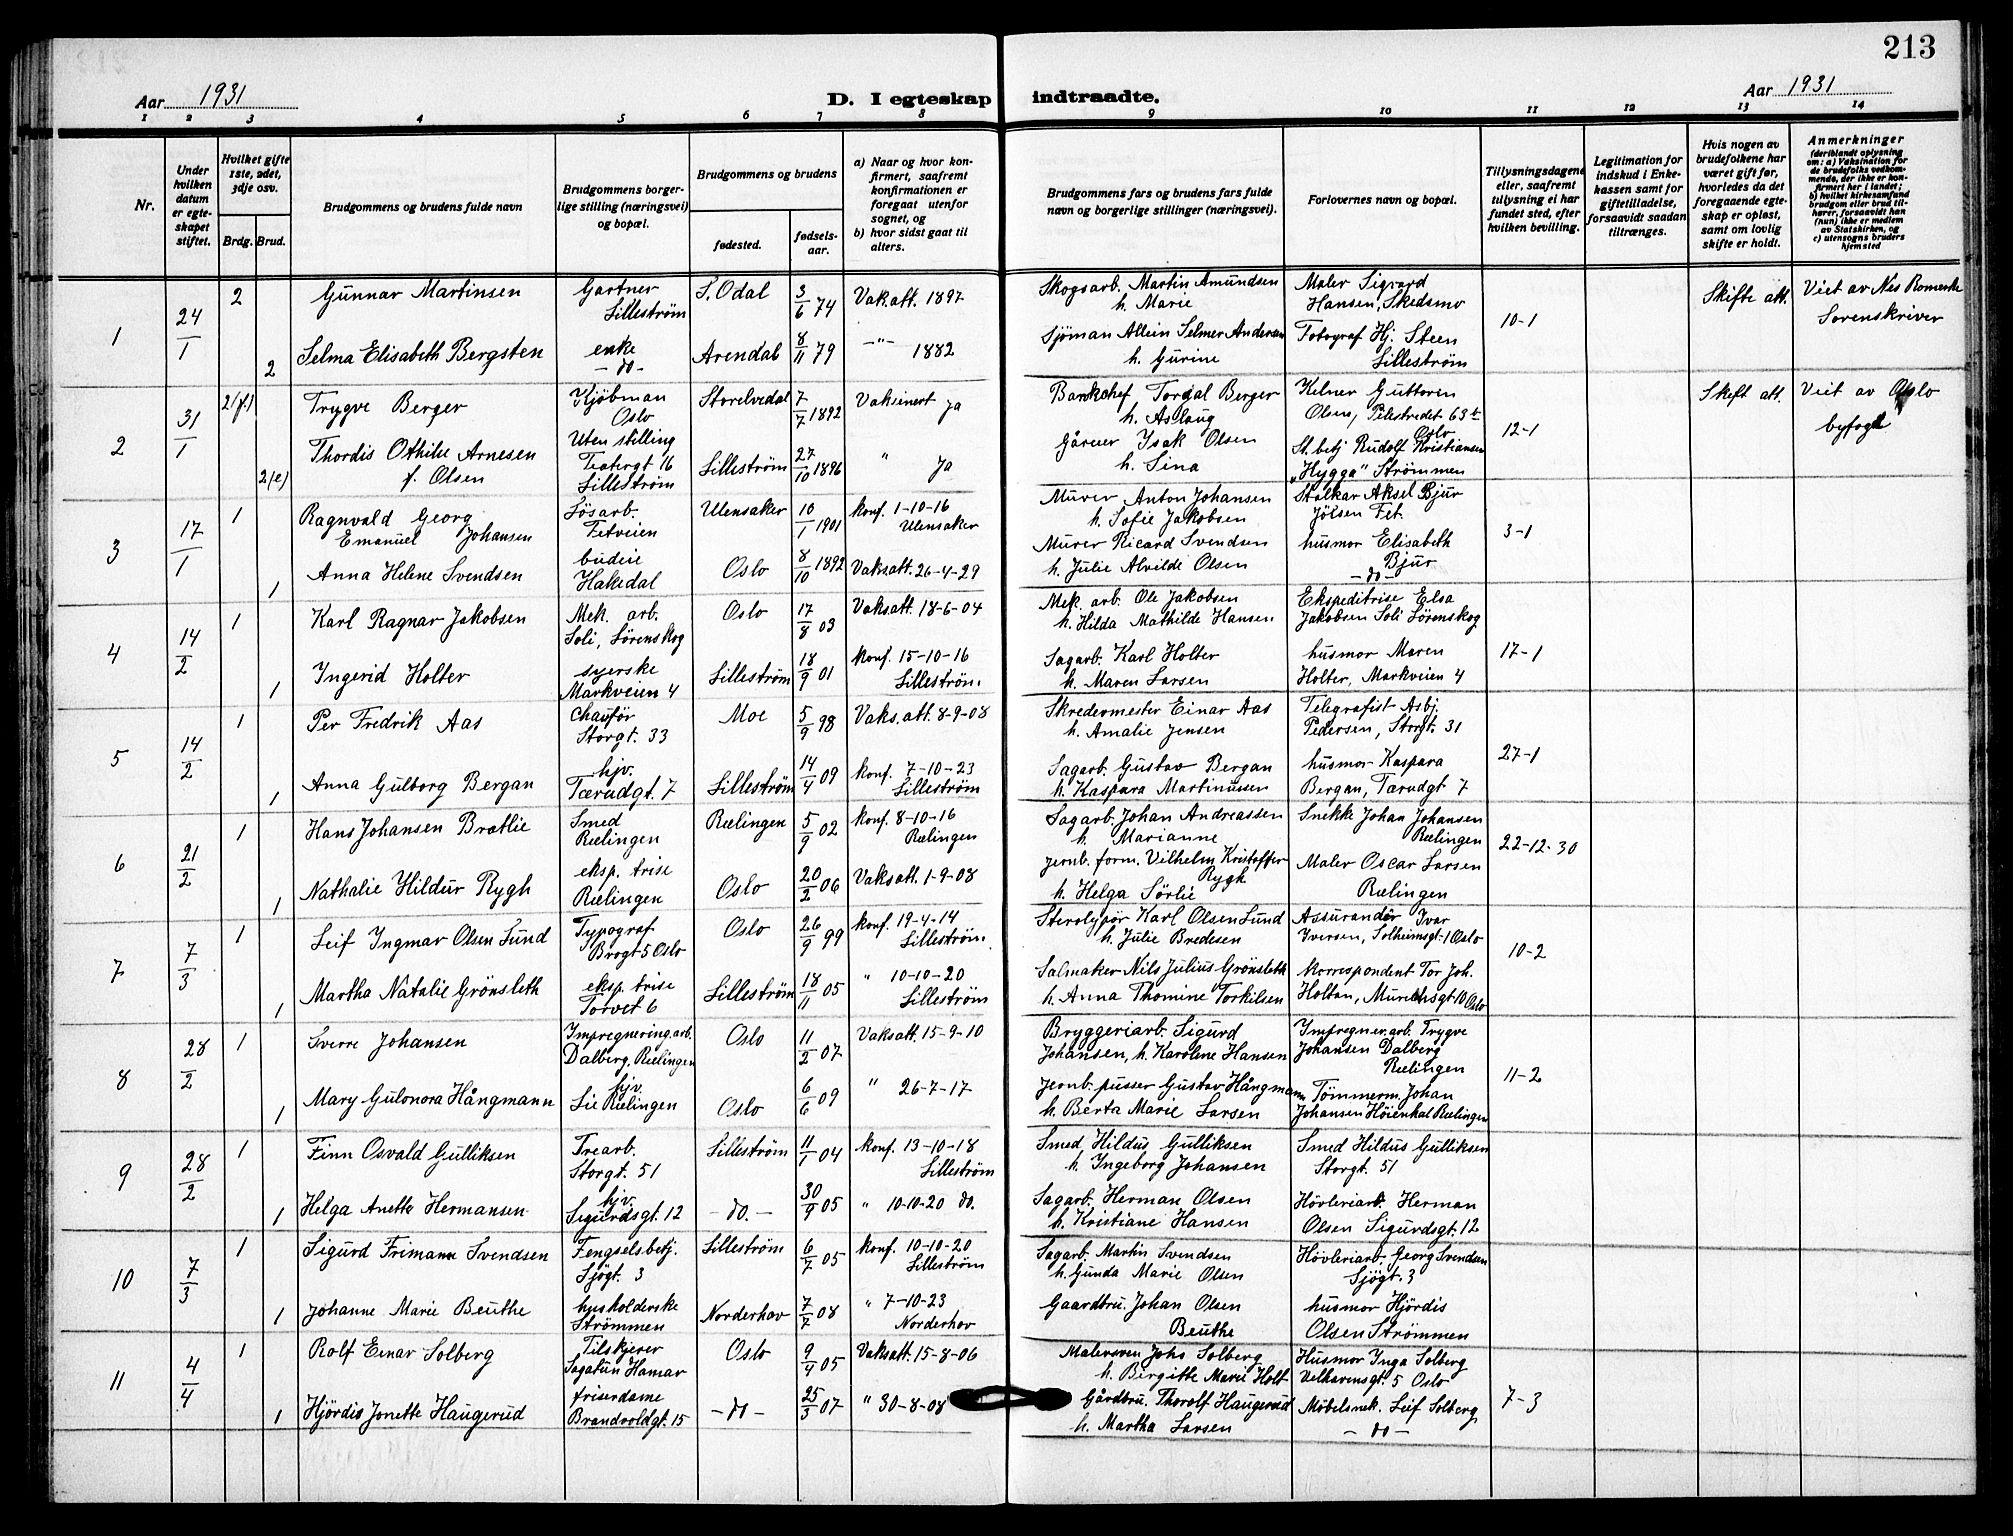 213
Aar 1931
D. I egteskap indtraadte.
Aar 1931
1 2 3 4 5 6 7 8 9 10 11 12 13 14
Nr.
Under hvilken datum er egteskapet stiftet.
Hvilket gifte 1ste, 2det, 3dje osv.
Brdg. Brud.
Brudgommens og brudens fulde navn
Brudgommens borgerlige stilling (næringsvei) og bopæl.
Brudgommens og brudens
fødested.
fødselsaar.
a) Naar og hvor konfirmert, saafremt konfirmationen er foregaat utenfor sognet, og
b) hvor sidst gaat til alters.
Brudgommens fars og brudens fars fulde navn og borgerlige stillinger (næringsvei).
Forlovernes navn og bopæl.
Tillysningsdagene eller, saafremt tillysning ei har fundet sted, efter hvilken bevilling.
Legitimation for indskud i Enkekassen samt for giftetilladelse, forsaavidt saadan tiltrænges.
Hvis nogen av brudefolkene har været gift før, hvorledes da det foregaaende egteskap er opløst, samt om lovlig skifte er holdt.
Anmerkninger
(deriblandt oplysning om: a) Vaksination for de brudefolks vedkommende, der ikke er konfirmert her i landet; b) hvilket kirkesamfund brudgom eller brud tilhører, forsaavidt han (hun) ikke er medlem av Statskirken, og c) utensogns bruders hjemsted
1 24/1 2 Gunnar Martinsen Gartner Lilleström S. Odal 3/6 74 Vak.att. 1897 Skogsarb. Martin Amundsen h. Marie Maler Sigvard Hansen, Skedsmo 10-1 Skifte att. Viet av Nes Romerike Sorenskriver
2 Selma Elisabeth Bergsten enke - do - Arendal 8/11 79 -"- 1882 Sjöman Allein Selmer Andersen h. Gurine Fotograf Hj. Steen Lilleström
2 31/1 2(f.) Trygve Berger Kjöbman Oslo Storelvedal 7/7 1892 Vaksinert ja Bankchef Tordal Berger h. Aslaug Kelner Guttorm Olsen, Pilestredet 63 Oslo 12-1 Skift att. Viet av Oslo byfogd
2(e) Thordis Othilie Arnesen f. Olsen Uten stilling Teatergt 16 Lilleström Lilleström 27/10 1896 " ja Gåreier Isak Olsen h. Lina St. betj Rudolf Kristiansen "Hygga" Strömmen
3 17/1 1 Ragnvald Georg Emanuel Johansen Lösarb. Fetveien Ulensaker 10/1 1901 konf. 1-10-16 Ulensaker Murer Anton Johansen h. Sofie Jakobsen Stolkar Aksel Bjur Jölsen Fet. 3-1
1 Anna Helene Svendsen budeie Hakedal Oslo 8/10 1892 Vaksatt. 26-4-29 Murer Ricard Svendsen h. Julie Alvilde Olsen husmor Elisabeth Bjur - do -
4 14/2 1 Karl Ragnar Jakobsen Mek. arb. Soli, Lörenskog Oslo 17/8 03 Vaksatt. 18-6-04 Mek. arb. Ole Jakobsen h. Hilda Mathilde Hansen Ekspeditrise Elsa Jakobsen Soli Lörenskog 17-1
1 Ingerid Holter syerske Markveien 4 Lilleström 18/9 01 konf. 15-10-16 Lilleström. Sagarb. Karl Holter h. Maren Larsen husmor Maren Holter, Markveien 4
5 14/2 1 Per Fredrik Aas Chauför Storgt. 33 Moe 5/9 98 Vaks.att. 8-9-08 Skredermester Einar Aas h. Amalie Jensen Telegrafist Asbj. Pedersen, Storgt. 31 27-1
1 Anna Gulborg Bergan hjv. Tærudgt. 7 Lilleström 14/4 09 konf. 7-10-23 Lilleström Sagarb. Gustav Bergan h. Kaspara Martinussen husmor Kaspara Bergan, Tærudgt 7
6 21/2 1 Hans Johansen Brætlie Smed Rælingen Rælingen 5/9 02 konf. 8-10-16 Rælingen Sagarb. Johan Andreassen h. Marianne Snekke Johan Johansen Rælingen 22-12-30
1 Nathalie Hildur Rygh eksp. trise Rælingen Oslo 20/2 06 Vaksatt. 1-9-08 Jernb. form. Vilhelm Kristoffer Rygh h. Helga Sörlie Maler Oscar Larsen Rælingen
7 7/3 1 Leif Ingmar Olsen Lund Typograf Brogt 5 Oslo Oslo 26/9 99 konf. 19-4-14 Lilleström. Sterolypör Karl Olsen Lund h. Julie Bredesen Assurandör Ivar Iversen, Solheimsgt. 1 Oslo 10-2
1 Martha Natalie Grönsleth eksp. trise Torvet 6 Lilleström 18/11 05 " 10-10-20 Lilleström Salmaker Nils Julius Grönsleth h. Anna Thomine Torkilsen korrespondent Tor Joh. Holtan, Munchsgt. 10 Oslo
8 28/2 1 Sverre Johansen Impregnering.arb. Dalberg, Rælingen Oslo 11/2 07 Vaksatt. 15-9-10 Bryggeriarb. Sigurd Johansen, h. Karolene Hansen Impregner.arb. Trygve Johansen Dalberg Rælingen 11-2
1 Mary Gulonora Hångmann hjv. Lie Rælingen Oslo 6/6 09 " 26-7-17 Jernb. pusser Gustav Hångmann h. Berta Marie Larsen Tömmerm. Johan Johansen Höienhal Rælingen
9 28/2 1 Finn Osvald Gulliksen Trearb. Storgt. 51 Lilleström 11/1 04 konf. 13-10-18 Lilleström Smed Hildus Gulliksen h. Ingeborg Johansen Smed Hildus Gulliksen Storgt. 51
1 Helga Anette Hermansen hjv. Sigurdsgt. 12 - do. - 30/9 05 " 10-10-20 do. Sagarb. Herman Olsen h. Kristiane Hansen Hövleriarb Herman Olsen Sigurdsgt. 12
10 7/3 1 Sigurd Frimann Svendsen Fengselsbetj. Sjögt. 3 Lilleström 6/7 05 konf. 10-10-20 Lilleström Sagarb. Martin Svendsen h. Gunda Marie Olsen Hövleriarb. Georg Svendsen Sjögt. 3
1 Johanne Marie Beuthe husholderske Strömmen Norderhov 7/7 08 " 7-10-23 Norderhov Gaardbru. Johan Olsen Beuthe husmor Hjördis Olsen Strömmen
11 4/4 1 Rolf Einar Solberg Tilskjerer Sagatun Hamar Oslo 9/4 05 Vaksatt. 15-8-06 Malersven Johs Solberg h. Birgitte Marie Holt Husmor Inga Solberg 5 Oslo 7-3
1 Hjördis Jonette Haugerud friserdame Brandvoldgt. 15 - do - 25/3 07 " 30-8-08 Gårdbru. Thorolf Haugerud h. Martha Larsen Möbelsnek. Leif Solberg - do -